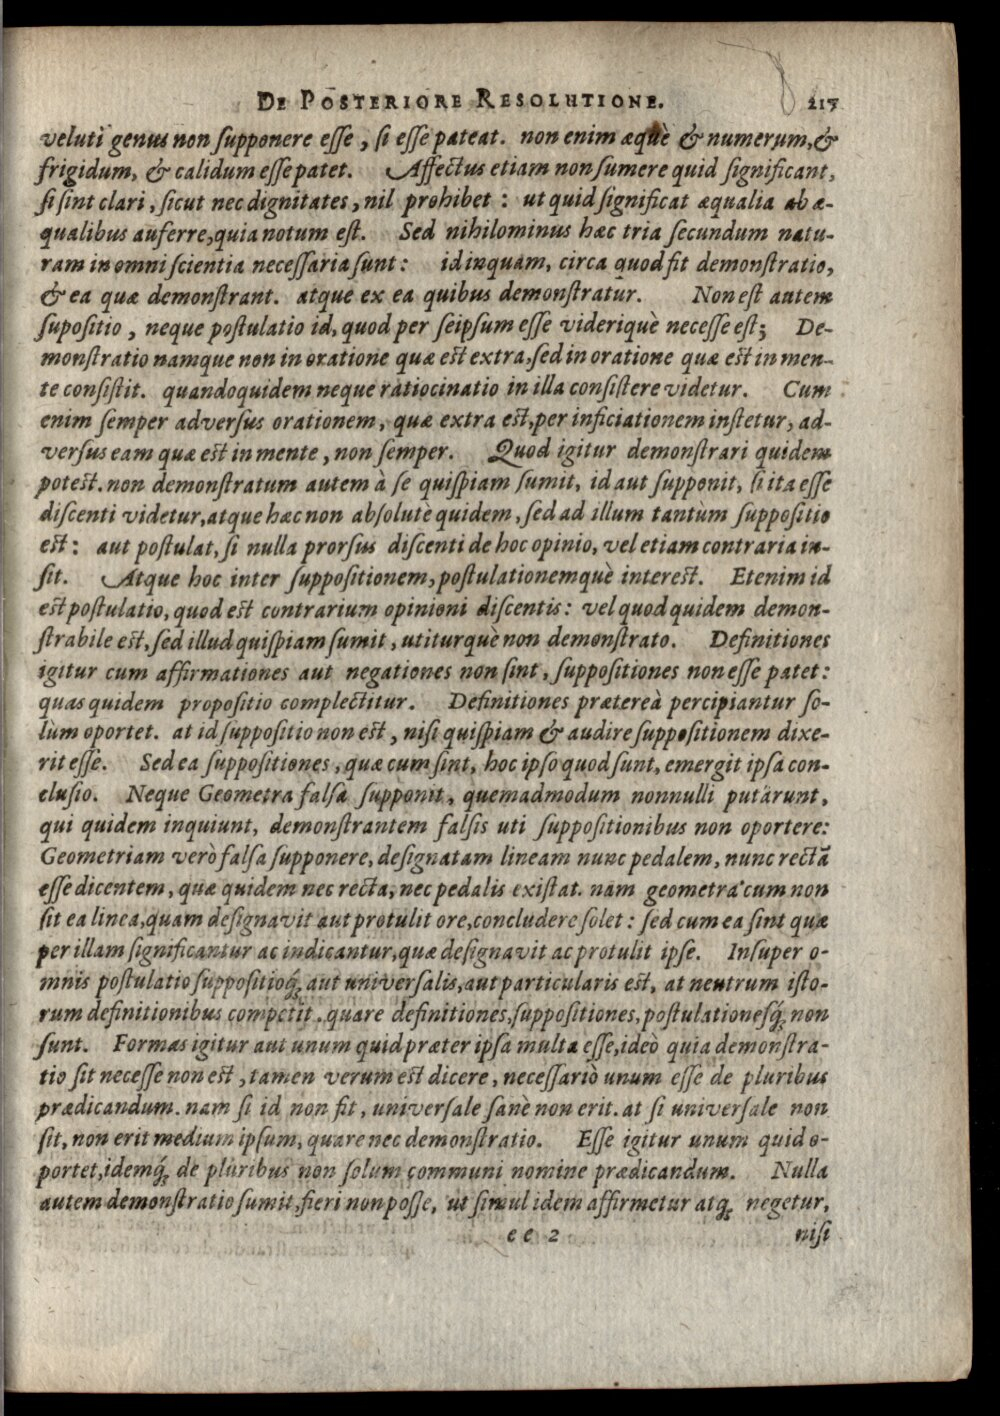 DE POSTERIORE RESOLUTIONE. 217
veluti genus non supponere esse, si esse pateat. non enim æquè & numerum, &
frigidum, & calidum esse patet. Affectus etiam non sumere quid significant,
si sint clari, sicut nec dignitates, nil prohibet: ut quid significat æqualia ab æ-
qualibus auferre, quia notum est. Sed nihilominus hæc tria secundum natu-
ram in omni scientia necessaria sunt: id inquam, circa quod fit demonstratio,
& ea quæ demonstrant. atque ex ea quibus demonstratur. Non est autem
supositio, neque postulatio id, quod per seipsum esse videriquè necesse est; De-
monstratio namque non in oratione quæ est extra, sed in oratione quæ est in men-
te consistit. quandoquidem neque ratiocinatio in illa consistere videtur. Cum
enim semper adversus orationem, quæ extra est, per inficiationem instetur, ad-
versus eam quæ est in mente, non semper. Quod igitur demonstrari quidem
potest. non demonstratum autem à se quispiam sumit, id aut supponit, si ita esse
discenti videtur, atque hæc non absolutè quidem, sed ad illum tantùm suppositio
est: aut postulat, si nulla prorsus discenti de hoc opinio, vel etiam contraria in-
sit. Atque hoc inter suppositionem, postulationemquè interest. Etenim id
est postulatio, quod est contrarium opinioni discentis: vel quod quidem demon-
strabile est, sed illud quispiam sumit, utiturquè non demonstrato. Definitiones
igitur cum affirmationes aut negationes non sint, suppositiones non esse patet:
quas quidem propositio complectitur. Definitiones prætereà percipiantur so-
lùm oportet. at id suppositio non est, nisi quispiam & audire suppositionem dixe-
rit esse. Sed ea suppositiones, quæ cum sint, hoc ipso quod sunt, emergit ipsa con-
clusio. Neque Geometra falsa supponit, quemadmodum nonnulli putarunt,
qui quidem inquiunt, demonstrantem falsis uti suppositionibus non oportere:
Geometriam verò falsa supponere, designatam lineam nunc pedalem, nunc rectã
esse dicentem, quæ quidem nec recta, nec pedalis existat. nam geometra cum non
sit ea linea, quam designavit aut protulit ore, concludere solet: sed cum ea sint quæ
per illam significantur ac indicantur, quæ designavit ac protulit ipse. Insuper o-
mnis postulatio suppositioq́; aut universalis, aut particularis est, at neutrum isto-
rum definitionibus competit. quare definitiones, suppositiones, postulationesq́; non
sunt. Formas igitur aut unum quid præter ipsa multa esse, ideò quia demonstra-
tio sit necesse non est, tamen verum est dicere, necessariò unum esse de pluribus
prædicandum. nam si id non fit, universale sanè non erit. at si universale non
sit, non erit medium ipsum, quare nec demonstratio. Esse igitur unum quid o-
portet, idemq́; de pluribus non solum communi nomine prædicandum. Nulla
autem demonstratio sumit, fieri non posse, ut simul idem affirmetur atq; negetur,
e e 2 nisi